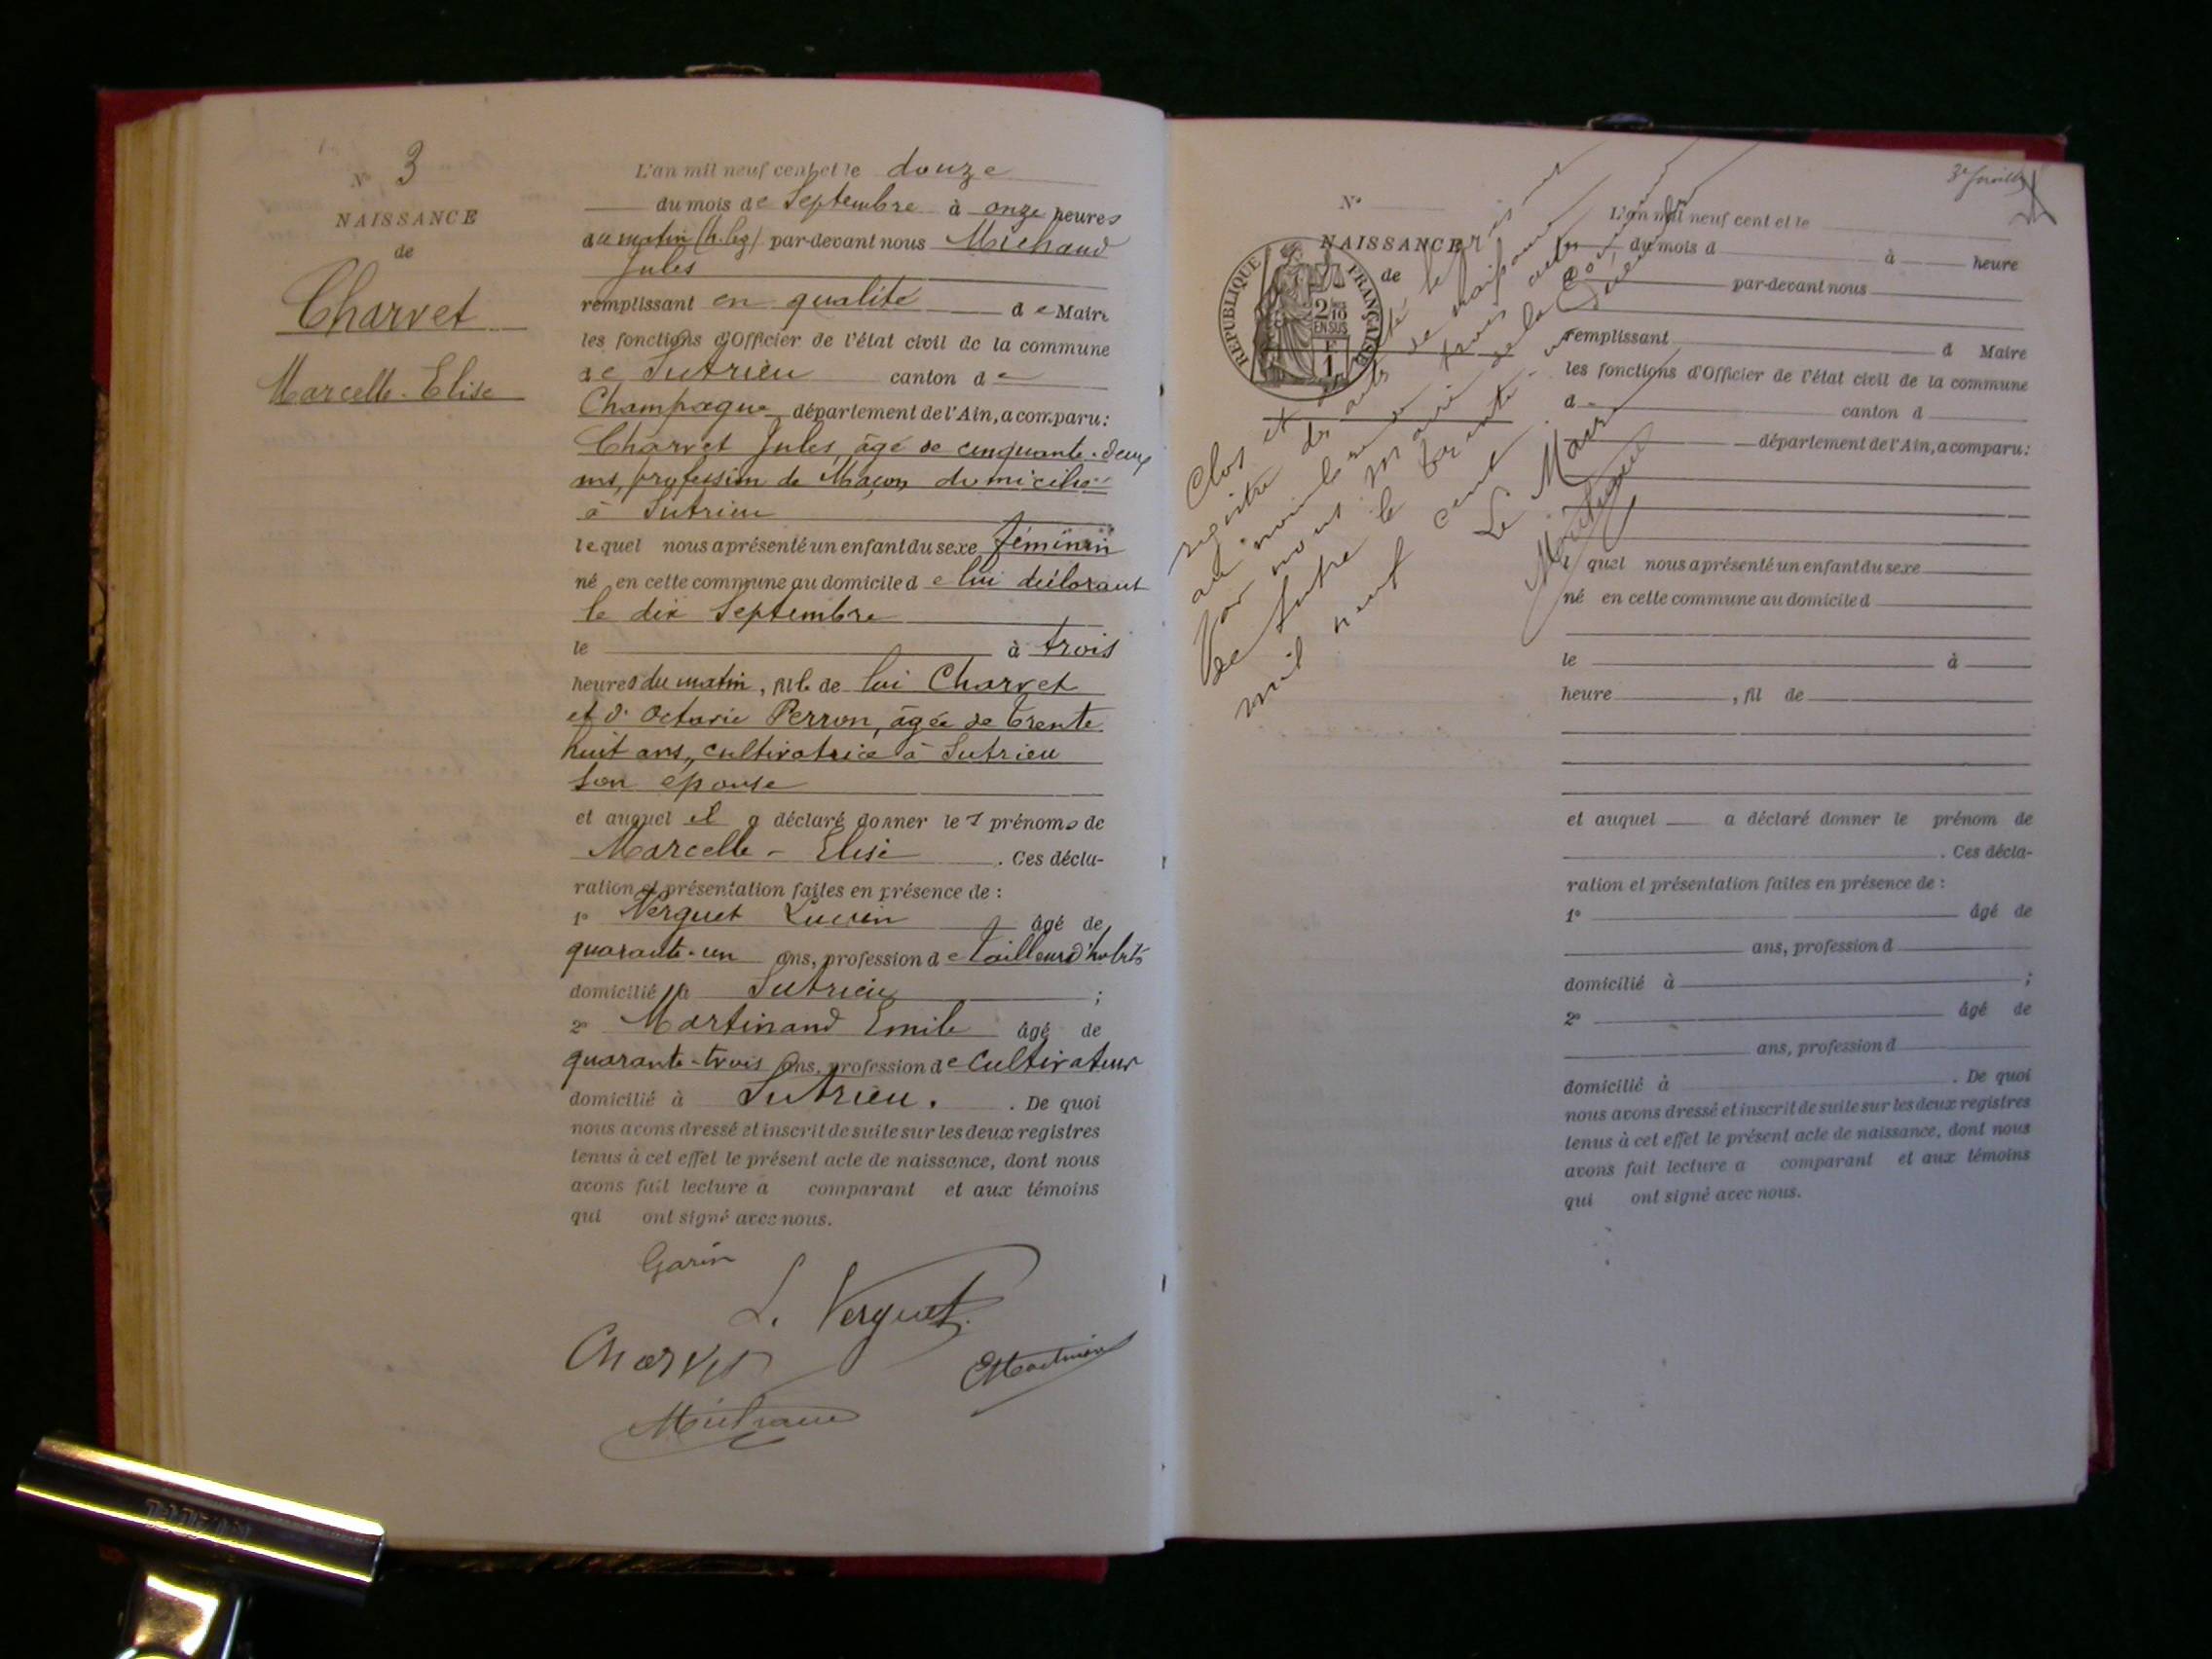 N° 3
NAISSANCE
de
Charvet
Marcelle-Elise
L'an mil neuf cent et le douze
du mois de Septembre à onze heures
du matin (h. leg) par-devant nous Michaud
Jules
remplissant en qualité de Maire
les fonctions d'Officier de l'état civil de la commune
de Sutrieu canton de
Champagne département de l'Ain, a comparu:
Charvet Jules, âgé de cinquante-deux
ans, profession de Maçon domicilié
à Sutrieu
lequel nous a présenté un enfant du sexe féminin
né en cette commune au domicile de lui déclarant
le dix Septembre
le à trois
heures du matin, fille de lui Charvet
et d'Octavie Perron, âgée de trente
huit ans, cultivatrice à Sutrieu
son épouse
et auquel il a déclaré donner les prénoms de
Marcelle - Elise . Ces décla-
ration et présentation faites en présence de :
1° Verguet Lucien âgé de
quarante-un ans, profession de tailleur d'habits
domicilié à Sutrieu ;
2° Martinand Emile âgé de
quarante-trois ans, profession de cultivateur
domicilié à Sutrieu. . De quoi
nous avons dressé et inscrit de suite sur les deux registres
tenus à cet effet le présent acte de naissance, dont nous
avons fait lecture a comparant et aux témoins
qui ont signé avec nous.
Garin
L. Verguet
Charvet
EMartinand
Michaud
3e feuille
N°
NAISSANCE
de
REPUBLIQUE FRANÇAISE
2/10
EN SUS
F
1
Clos et arrêté le présent
registre des actes de naissances
au nombre de trois actes
par nous Maire de la Commune
de Sutrieu le trente-un Décembre
mil neuf cent
Le Maire
Michaud
L'an mil neuf cent et le
du mois d à heure
par-devant nous
remplissant d Maire
les fonctions d'Officier de l'état civil de la commune
d canton d
département de l'Ain, a comparu:
quel nous a présenté un enfant du sexe
né en cette commune au domicile d
le à
heure , fil de
et auquel a déclaré donner le prénom de
. Ces décla-
ration et présentation faites en présence de :
1° âgé de
ans, profession d
domicilié à ;
2° âgé de
ans, profession d
domicilié à . De quoi
nous avons dressé et inscrit de suite sur les deux registres
tenus à cet effet le présent acte de naissance, dont nous
avons fait lecture a comparant et aux témoins
qui ont signé avec nous.